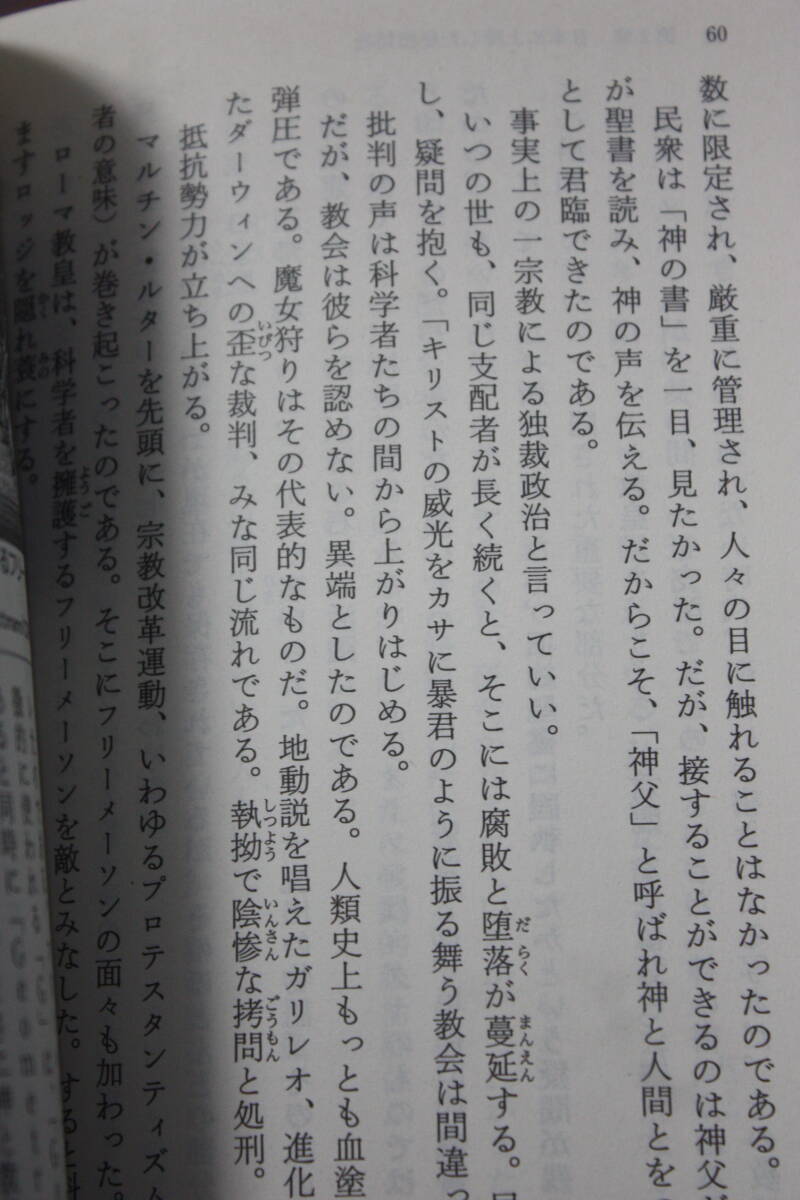 60
数に限定され、厳重に管理され、人々の目に触れることはなかったのである。
民衆は「神の書」を一目、見たかった。だが、接することができるのは神父
が聖書を読み、神の声を伝える。だからこそ、「神父」と呼ばれ神と人間とを
として君臨できたのである。
事実上の一宗教による独裁政治と言っていい。
いつの世も、同じ支配者が長く続くと、そこには腐敗と堕落が蔓延する。
し、疑問を抱く。「キリストの威光をカサに暴君のように振る舞う教会は間違っ
批判の声は科学者たちの間から上がりはじめる。
だが、教会は彼らを認めない。異端としたのである。人類史上もっとも血塗
弾圧である。魔女狩りはその代表的なものだ。地動説を唱えたガリレオ、進化
たダーウィンへの歪な裁判、みな同じ流れである。執拗で陰惨な拷問と処刑。
抵抗勢力が立ち上がる。
マルチン・ルターを先頭に、宗教改革運動、いわゆるプロテスタンティズム
者の意味）が巻き起こったのである。そこにフリーメーソンの面々も加わった。
ローマ教皇は、科学者を擁護するフリーメーソンを敵とみなした。すると
ますロッジを隠れ蓑にする。